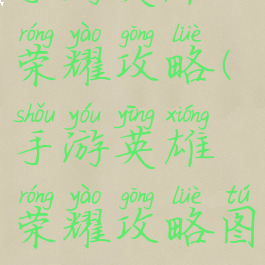 róng yào gōng lüè
荣耀攻略(
shǒu yóu yīng xióng
手游英雄
róng yào gōng lüè tú
荣耀攻略图